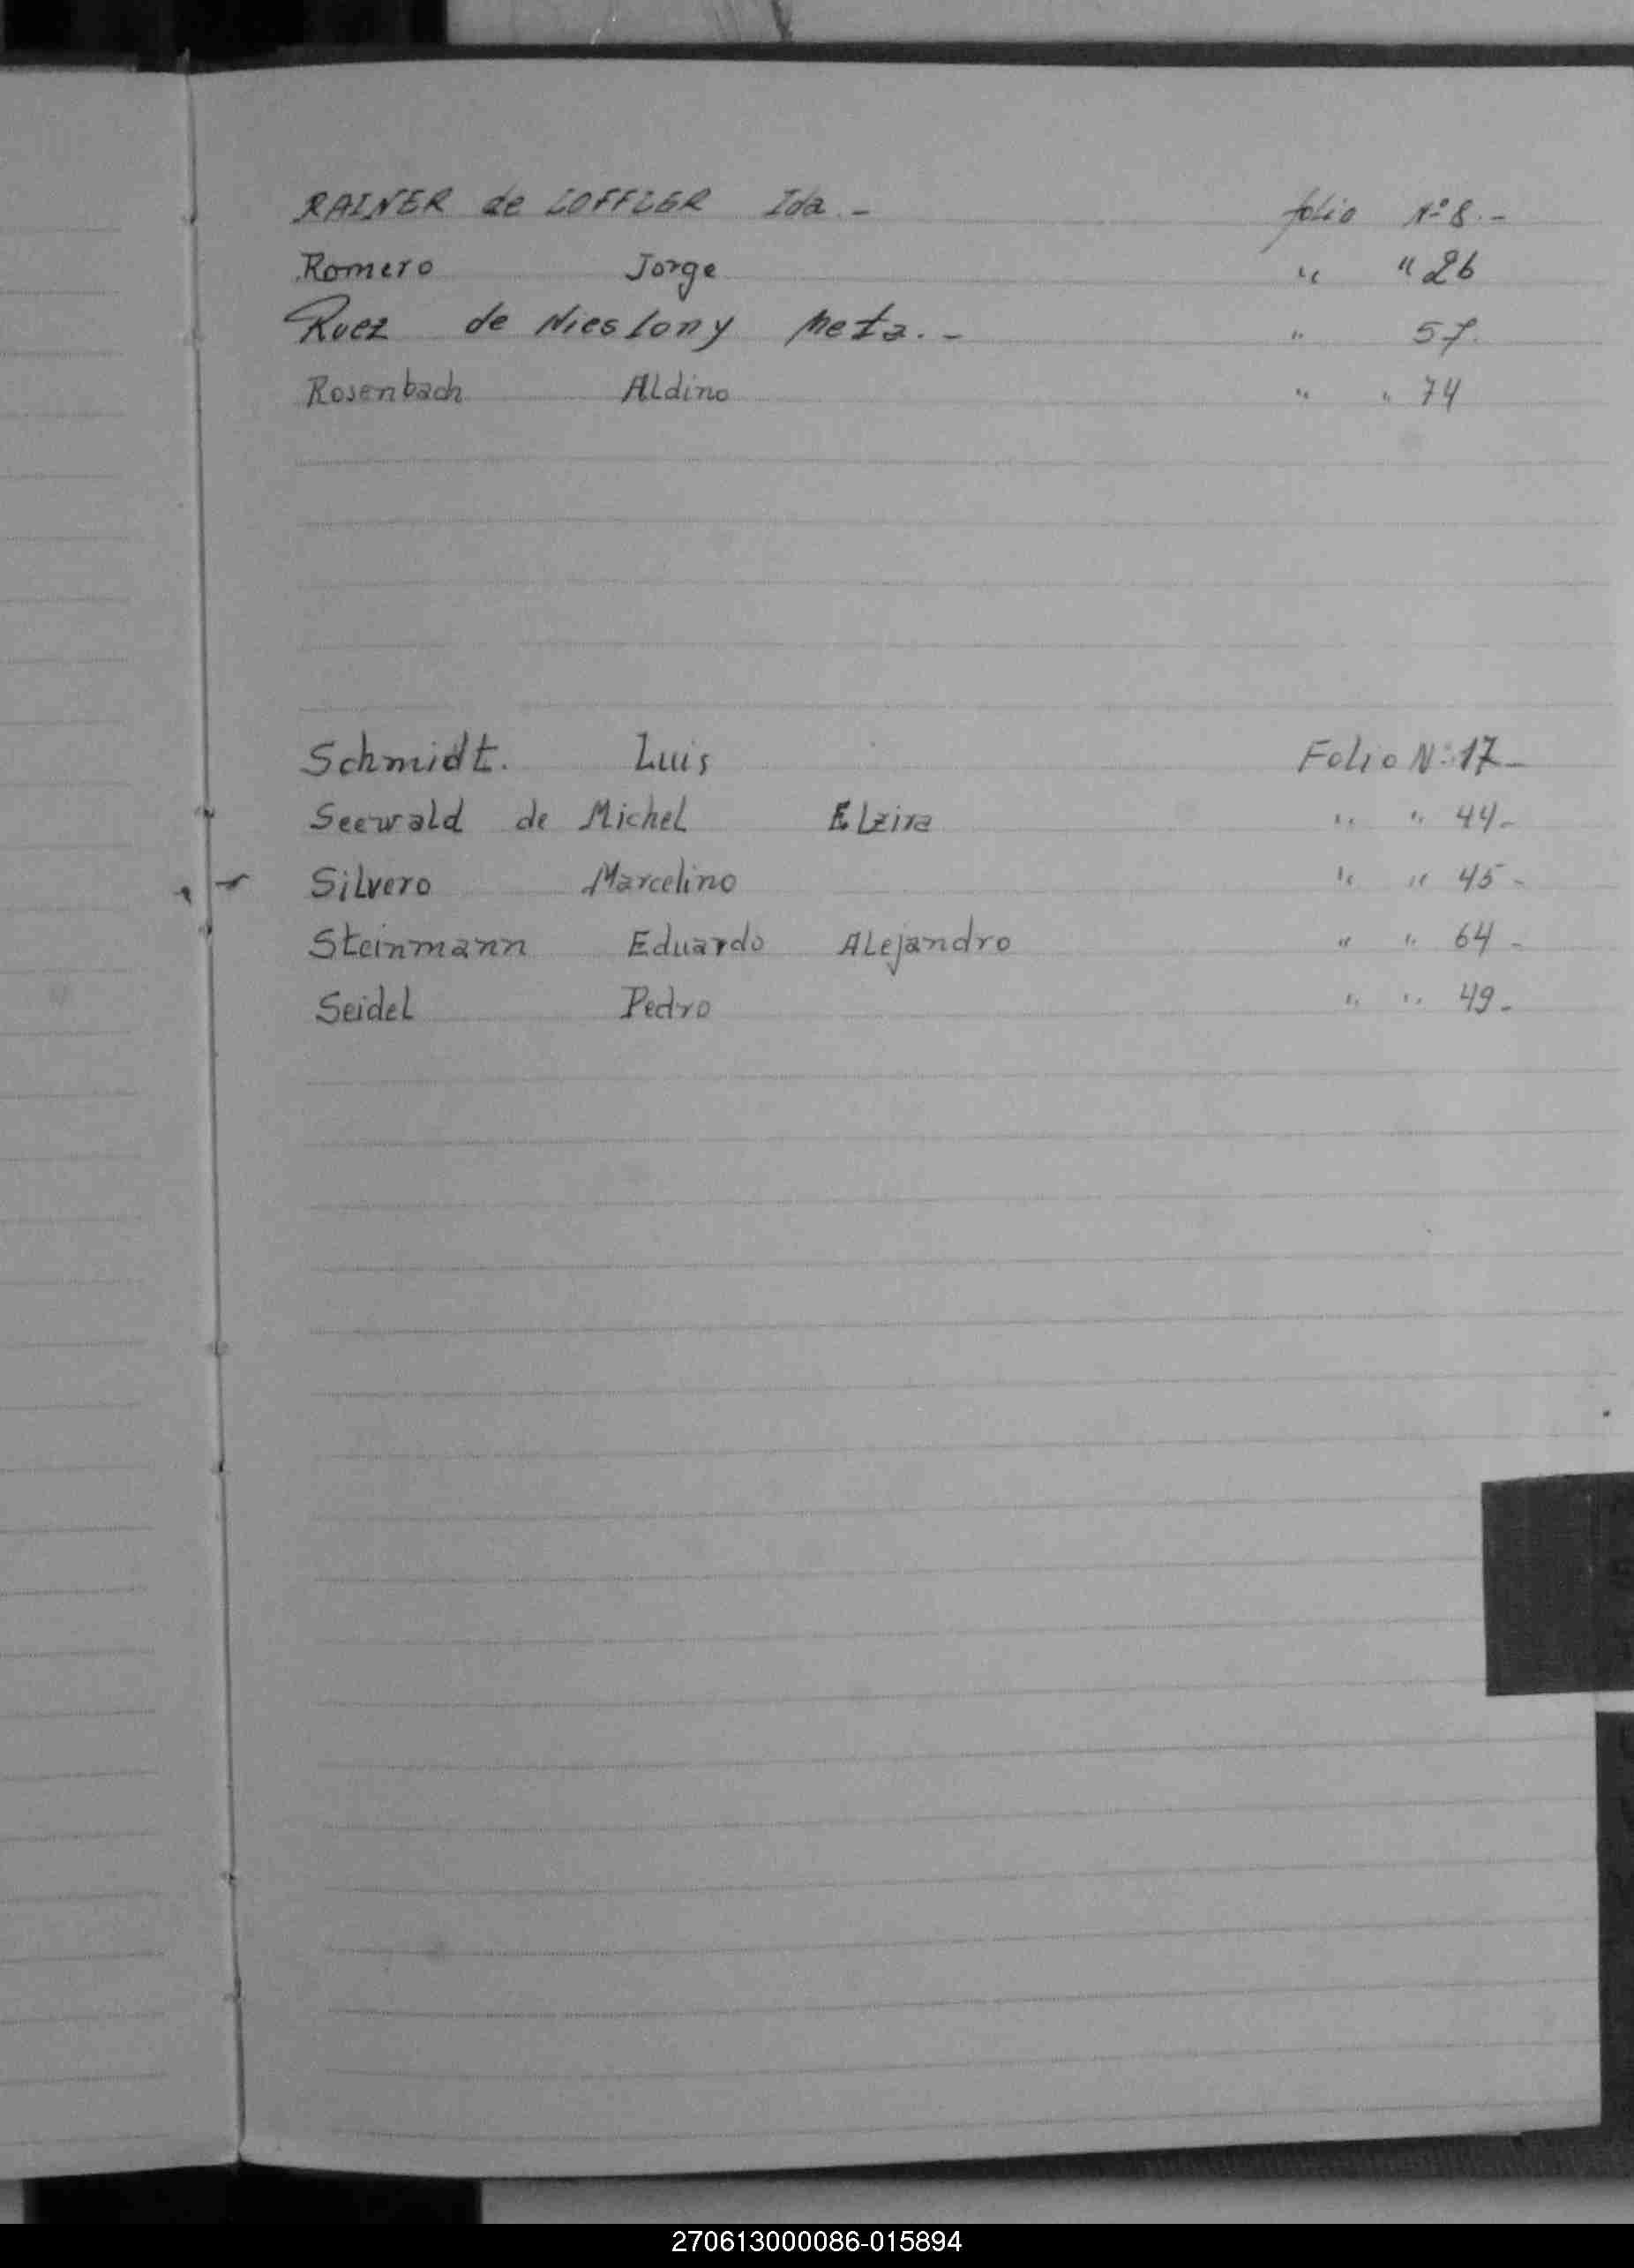 RAINER de LOFFLER Ida.- folio Nº 8.-
Romero Jorge " " 26
Ruez de Nieslony Meta.- " 57.
Rosenbach Aldino " " 74
Schmidt. Luis Folio Nº 17-
Seewald de Michel Elzira " " 44-
Silvero Marcelino " " 45-
Steinmann Eduardo Alejandro " " 64-
Seidel Pedro " " 49-
270613000086-015894